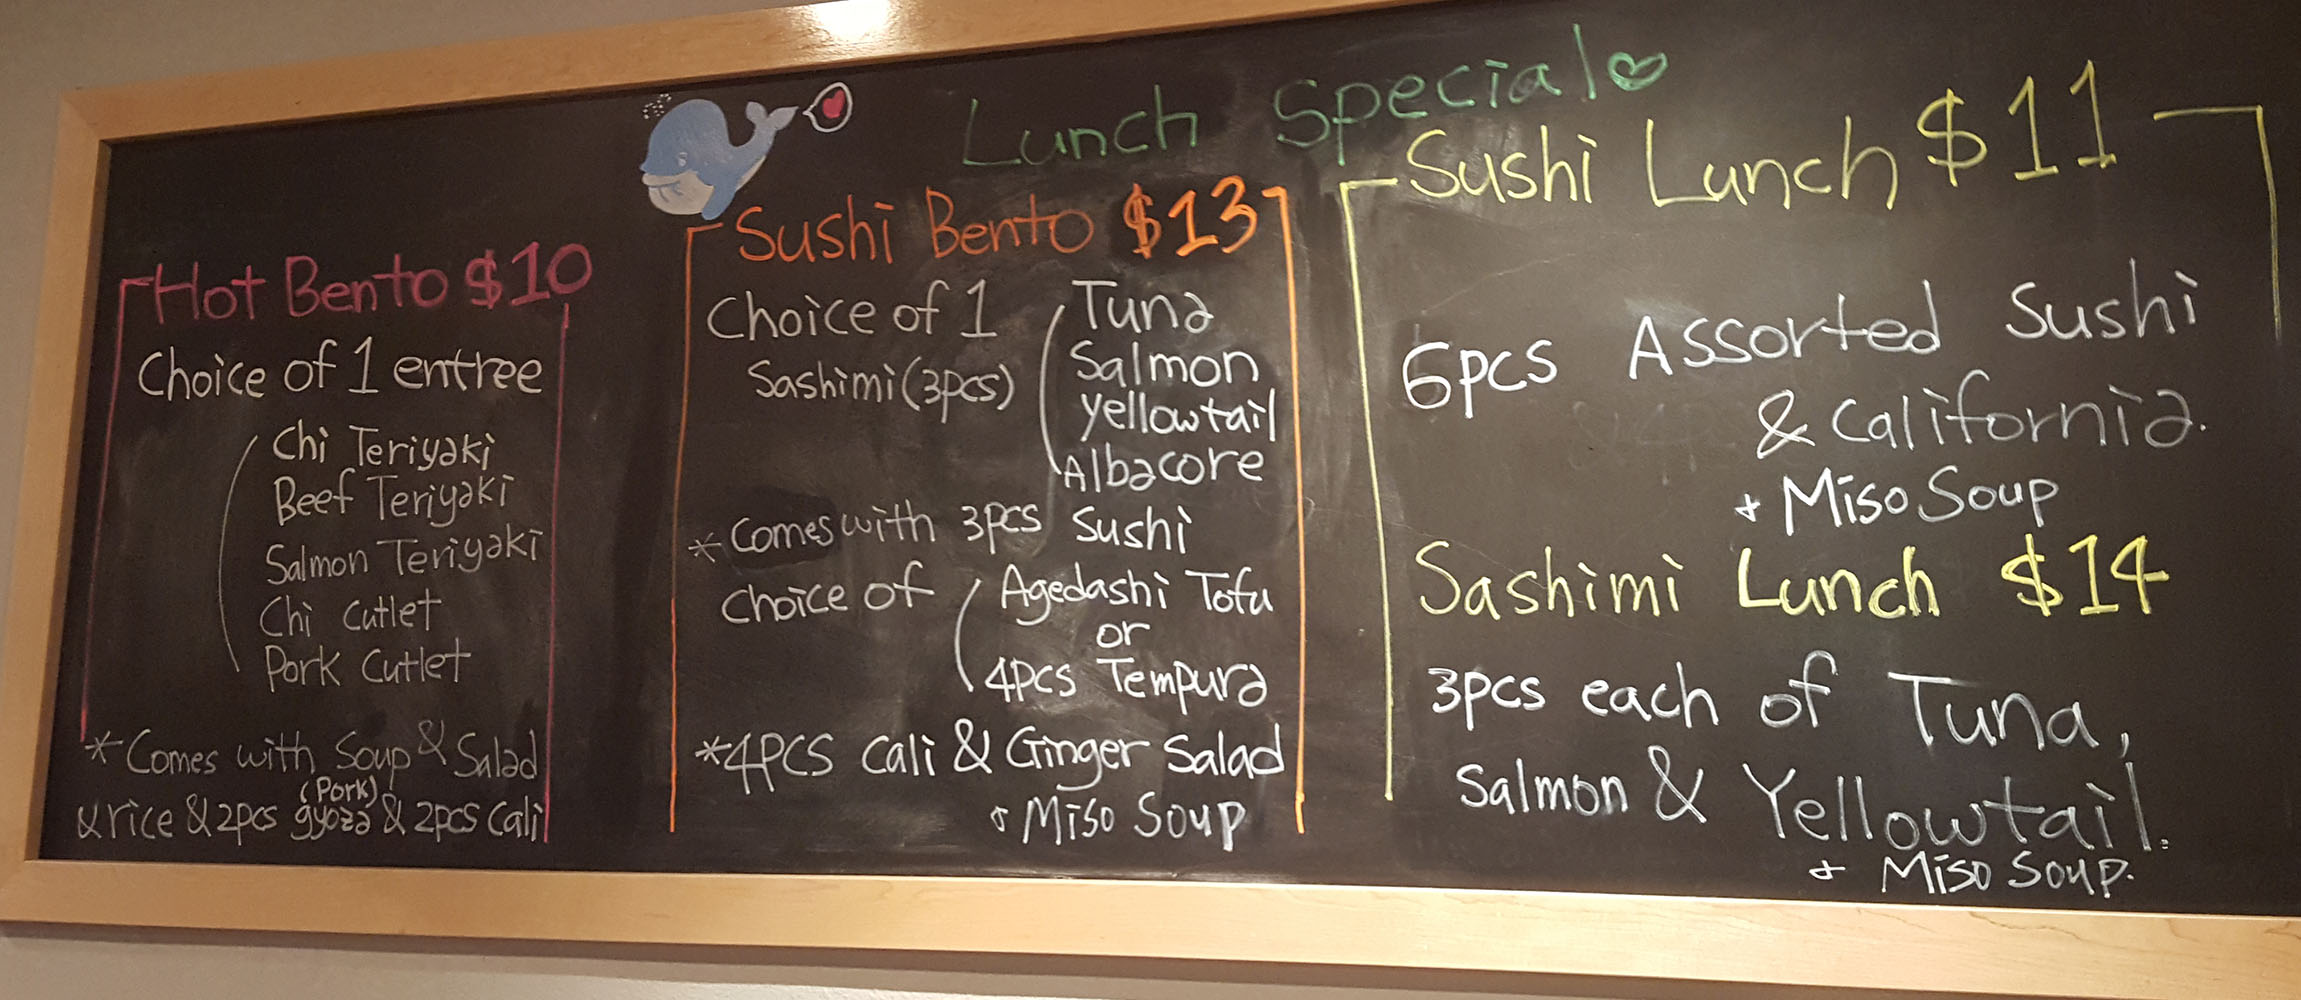 Lunch Special
Hot Bento $10
Choice of 1 entree
Chi Teriyaki
Beef Teriyaki
Salmon Teriyaki
Chi Cutlet
Pork Cutlet
*Comes with Soup & Salad
& rice & 2pcs (Pork) gyoza & 2pcs Cali
Sushi Bento $13
Choice of 1
Sashimi (3pcs)
Tuna
Salmon
Yellowtail
Albacore
*Comes with 3pcs Sushi
Choice of
Agedashi Tofu
or
4pcs Tempura
*4PCS Cali & Ginger Salad
+ Miso Soup
Sushi Lunch $11
6pcs Assorted Sushi
& California.
+ Miso Soup
Sashimi Lunch $14
3pcs each of Tuna,
Salmon & Yellowtail.
+ Miso Soup.